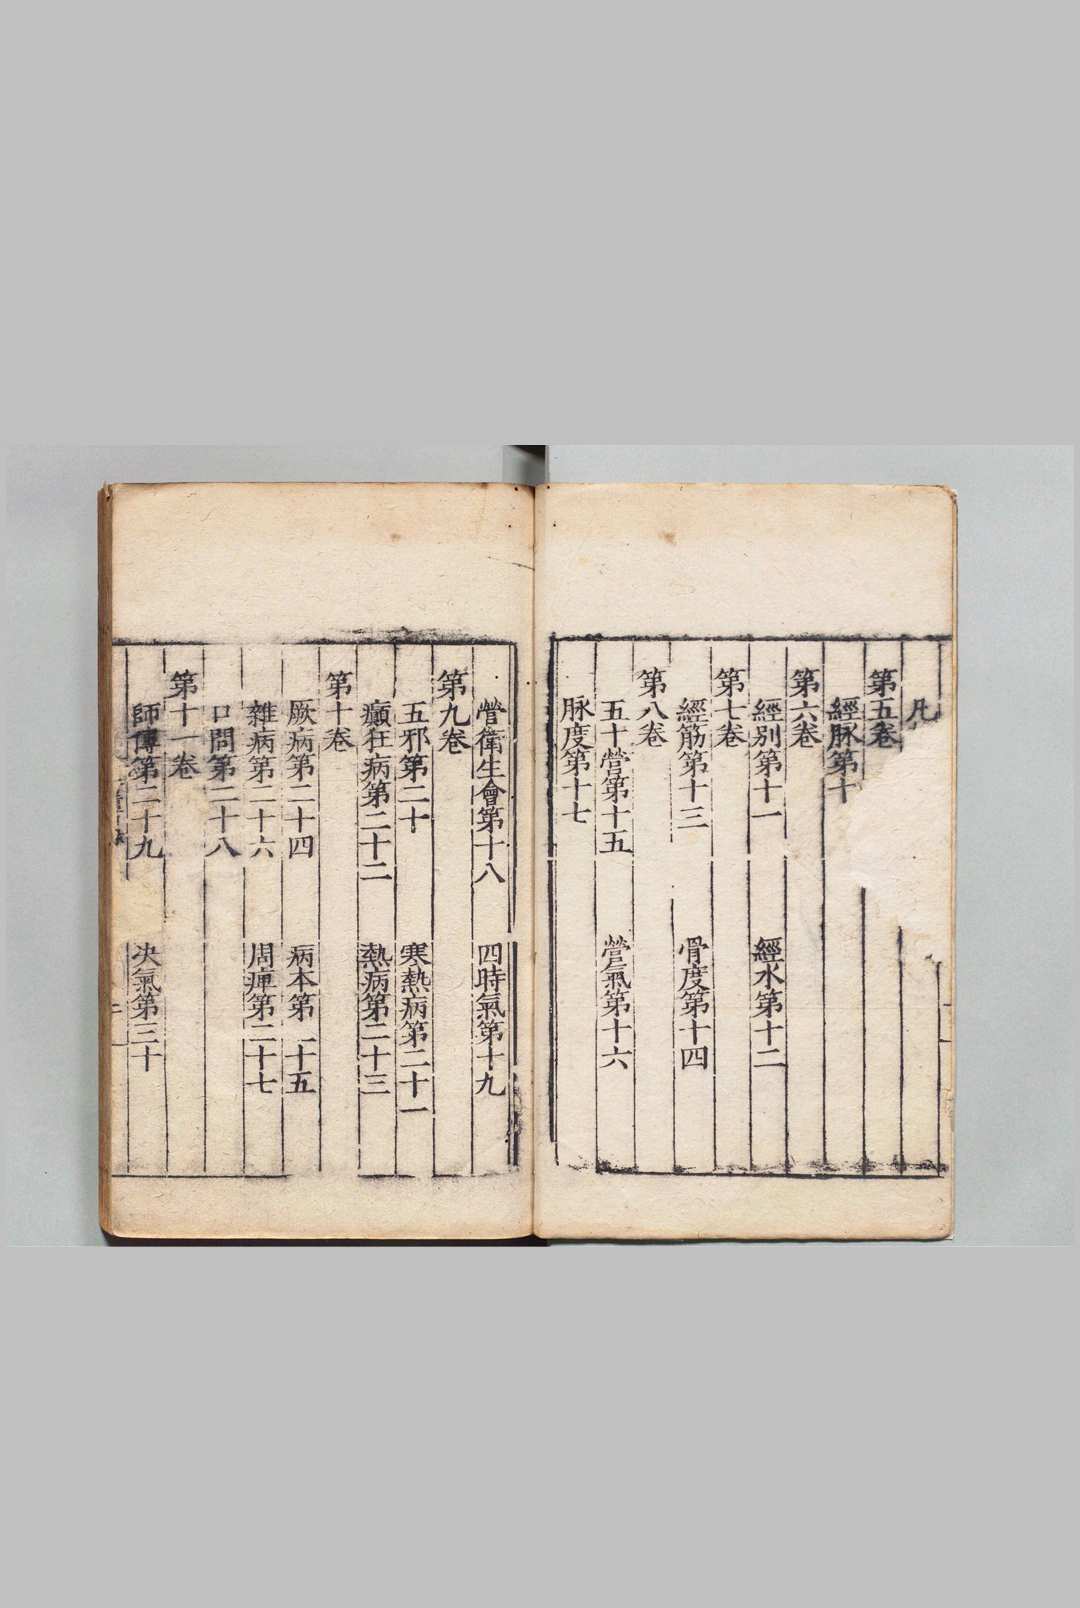 凡
第五卷
經脉第十
第六卷
經別第十一 經水第十二
第七卷
經筋第十三 骨度第十四
第八卷
五十營第十五 營氣第十六
脉度第十七
營衛生會第十八 四時氣第十九
第九卷
五邪第二十 寒熱病第二十一
癲狂病第二十二 熱病第二十三
第十卷
厥病第二十四 病本第二十五
雜病第二十六 周痺第二十七
口問第二十八
第十一卷
師傳第二十九 決氣第三十